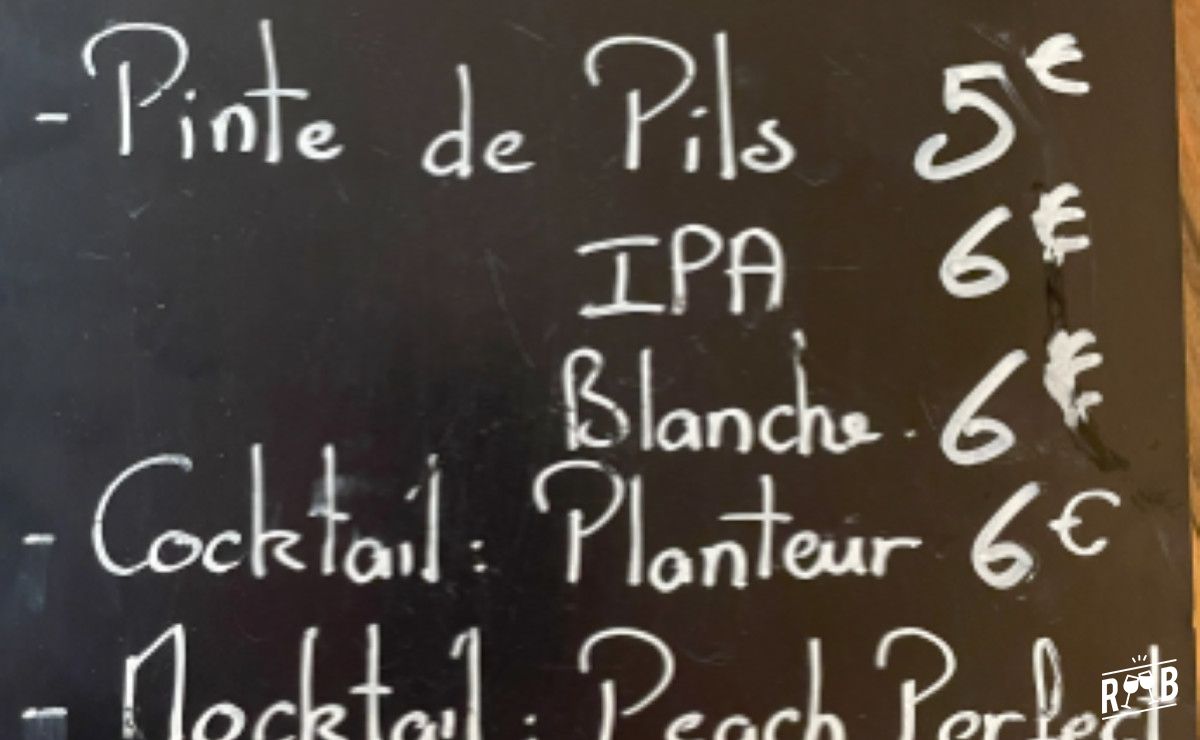 - Pinte de Pils 5€
IPA 6€
Blanche. 6€
- Cocktail : Planteur 6€
- Mocktail : Peach Perfect
R B